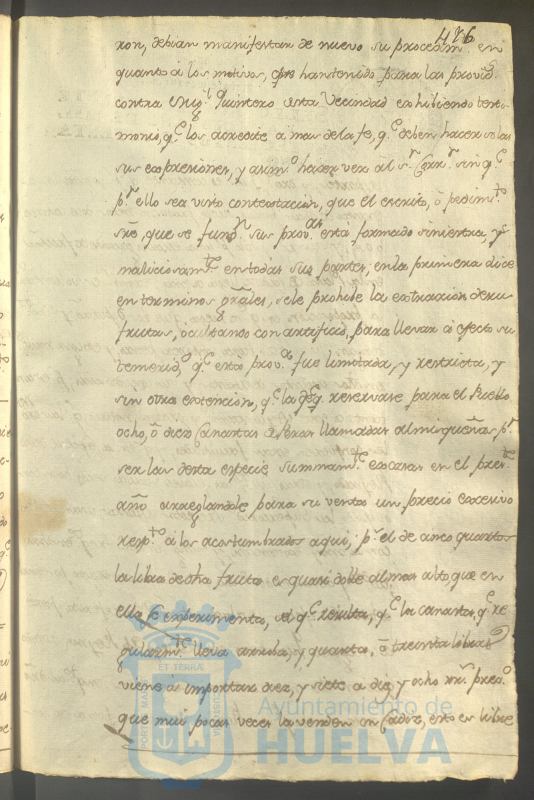 476
ron, debian manifestar de nuevo su procedim.to en
quanto á los motivos, que han tenido para las provid.s
contra Mig.l Quintero desta Vecindad exhibiendo testi-
monio, q.e los acredite á mas de la fe, q.e deben hacer solas
sus expresiones, y asim.o hacer ver al S.r Corr.or sin q.e
p.r ello sea visto contestacion, que el escrito, ó pedim.to
sre, que se fund.n sus prov.as está formado siniestra, y
maliciosam.te en todas sus partes; en la primera dice
en terminos grāles, sele prohibe la extraccion de su
frutas, ocultando con artificio, para llevar á efecto su
temerid.d q.e esta prov.a fue limitada, y restricta, y
sin otra extencion, q.e la de q.e reservase para el Pueblo
ocho, ó diez Canastas de Peras llamadas almizqueñas p.r
ser las desta especie summam.te escasas en el pres.te
año arreglandole para su venta un precio excesivo
resp.to á los acostumbrados aqui; p.s el de cinco quartos
la libra de dha fruta es quasi doble al mas alto que en
ella se experimenta, del q.e resulta, q.e la canasta, q.e re-
gularm.te lleva arroba, y quarta, ó treinta libras
viene á importar diez, y siete á diez, y ocho rr.s precio
que mui pocas veces la venden en Cadiz, esto es libre
Ayuntamiento de
HUELVA
PORTUS MARIS
ET TERRÆ
CUSTODIA